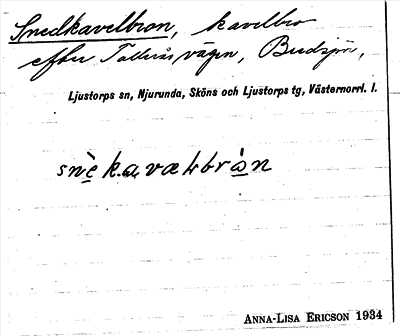 Snedkavelbron, kavelbro
efter Tallnäsvägen, Bredsjön,
Ljustorps sn, Njurunda, Sköns och Ljustorps tg, Västernorrl. l.
snèkavælbràn
ANNA-LISA ERICSON 1934